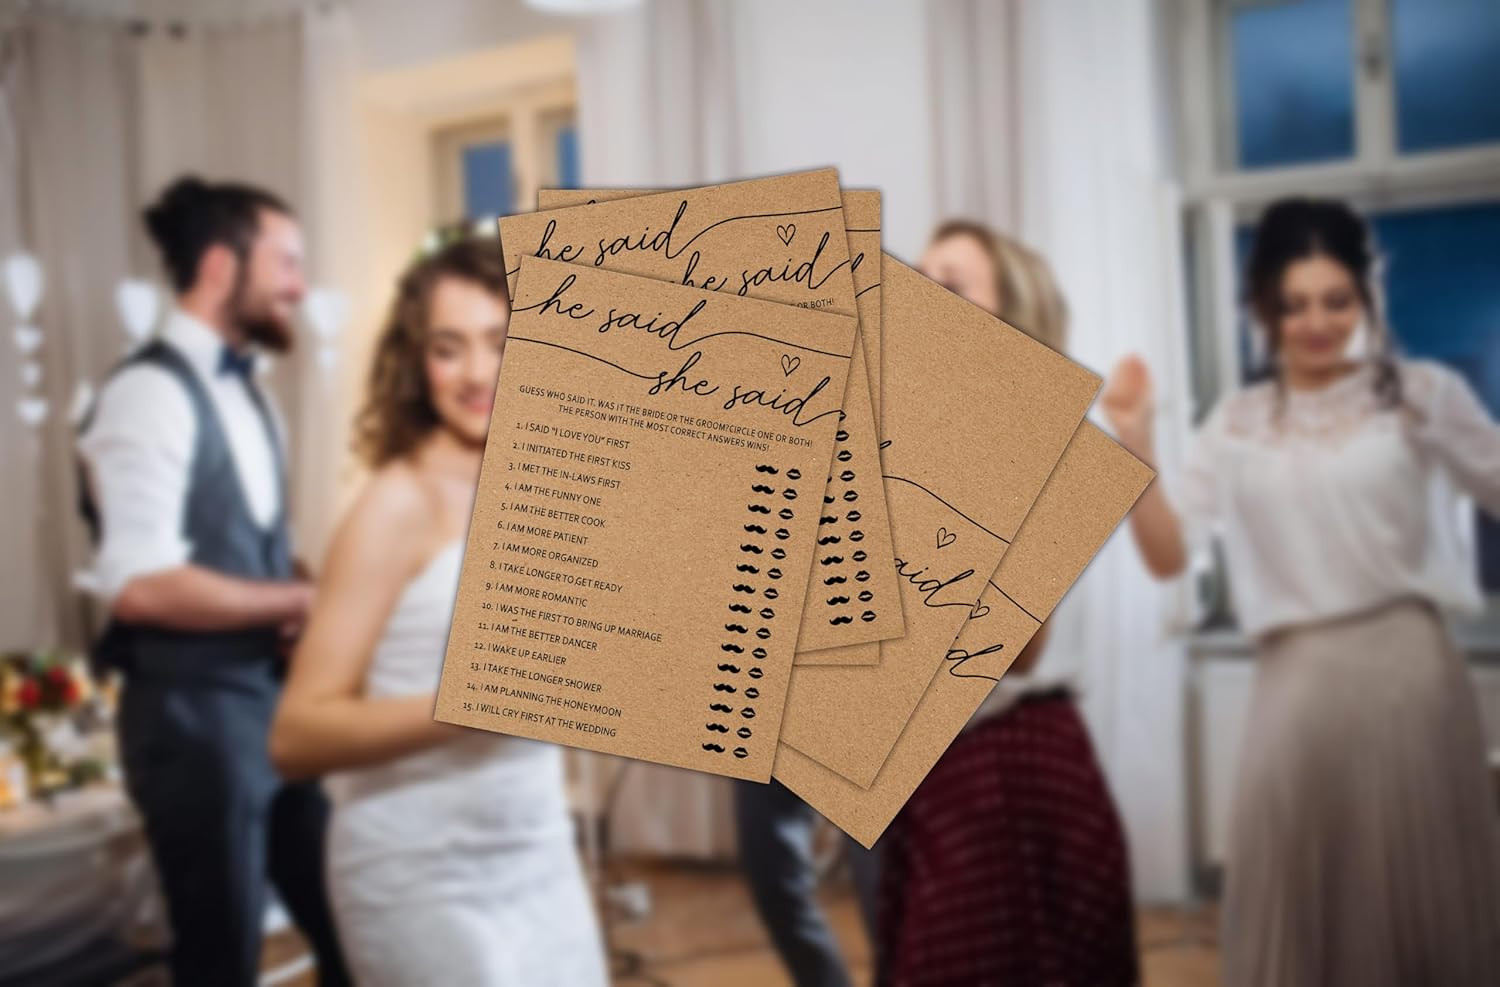 he said
he said
OR BOTH!
he said
she said
GUESS WHO SAID IT, WAS IT THE BRIDE OR THE GROOM?CIRCLE ONE OR BOTH!
THE PERSON WITH THE MOST CORRECT ANSWERS WINS!
1. I SAID "I LOVE YOU" FIRST
2. I INITIATED THE FIRST KISS
3. I MET THE IN-LAWS FIRST
4. I AM THE FUNNY ONE
5. I AM THE BETTER COOK
6. I AM MORE PATIENT
7. I AM MORE ORGANIZED
8. I TAKE LONGER TO GET READY
9. I AM MORE ROMANTIC
10. I WAS THE FIRST TO BRING UP MARRIAGE
11. I AM THE BETTER DANCER
12. I WAKE UP EARLIER
13. I TAKE THE LONGER SHOWER
14. I AM PLANNING THE HONEYMOON
15. I WILL CRY FIRST AT THE WEDDING
said